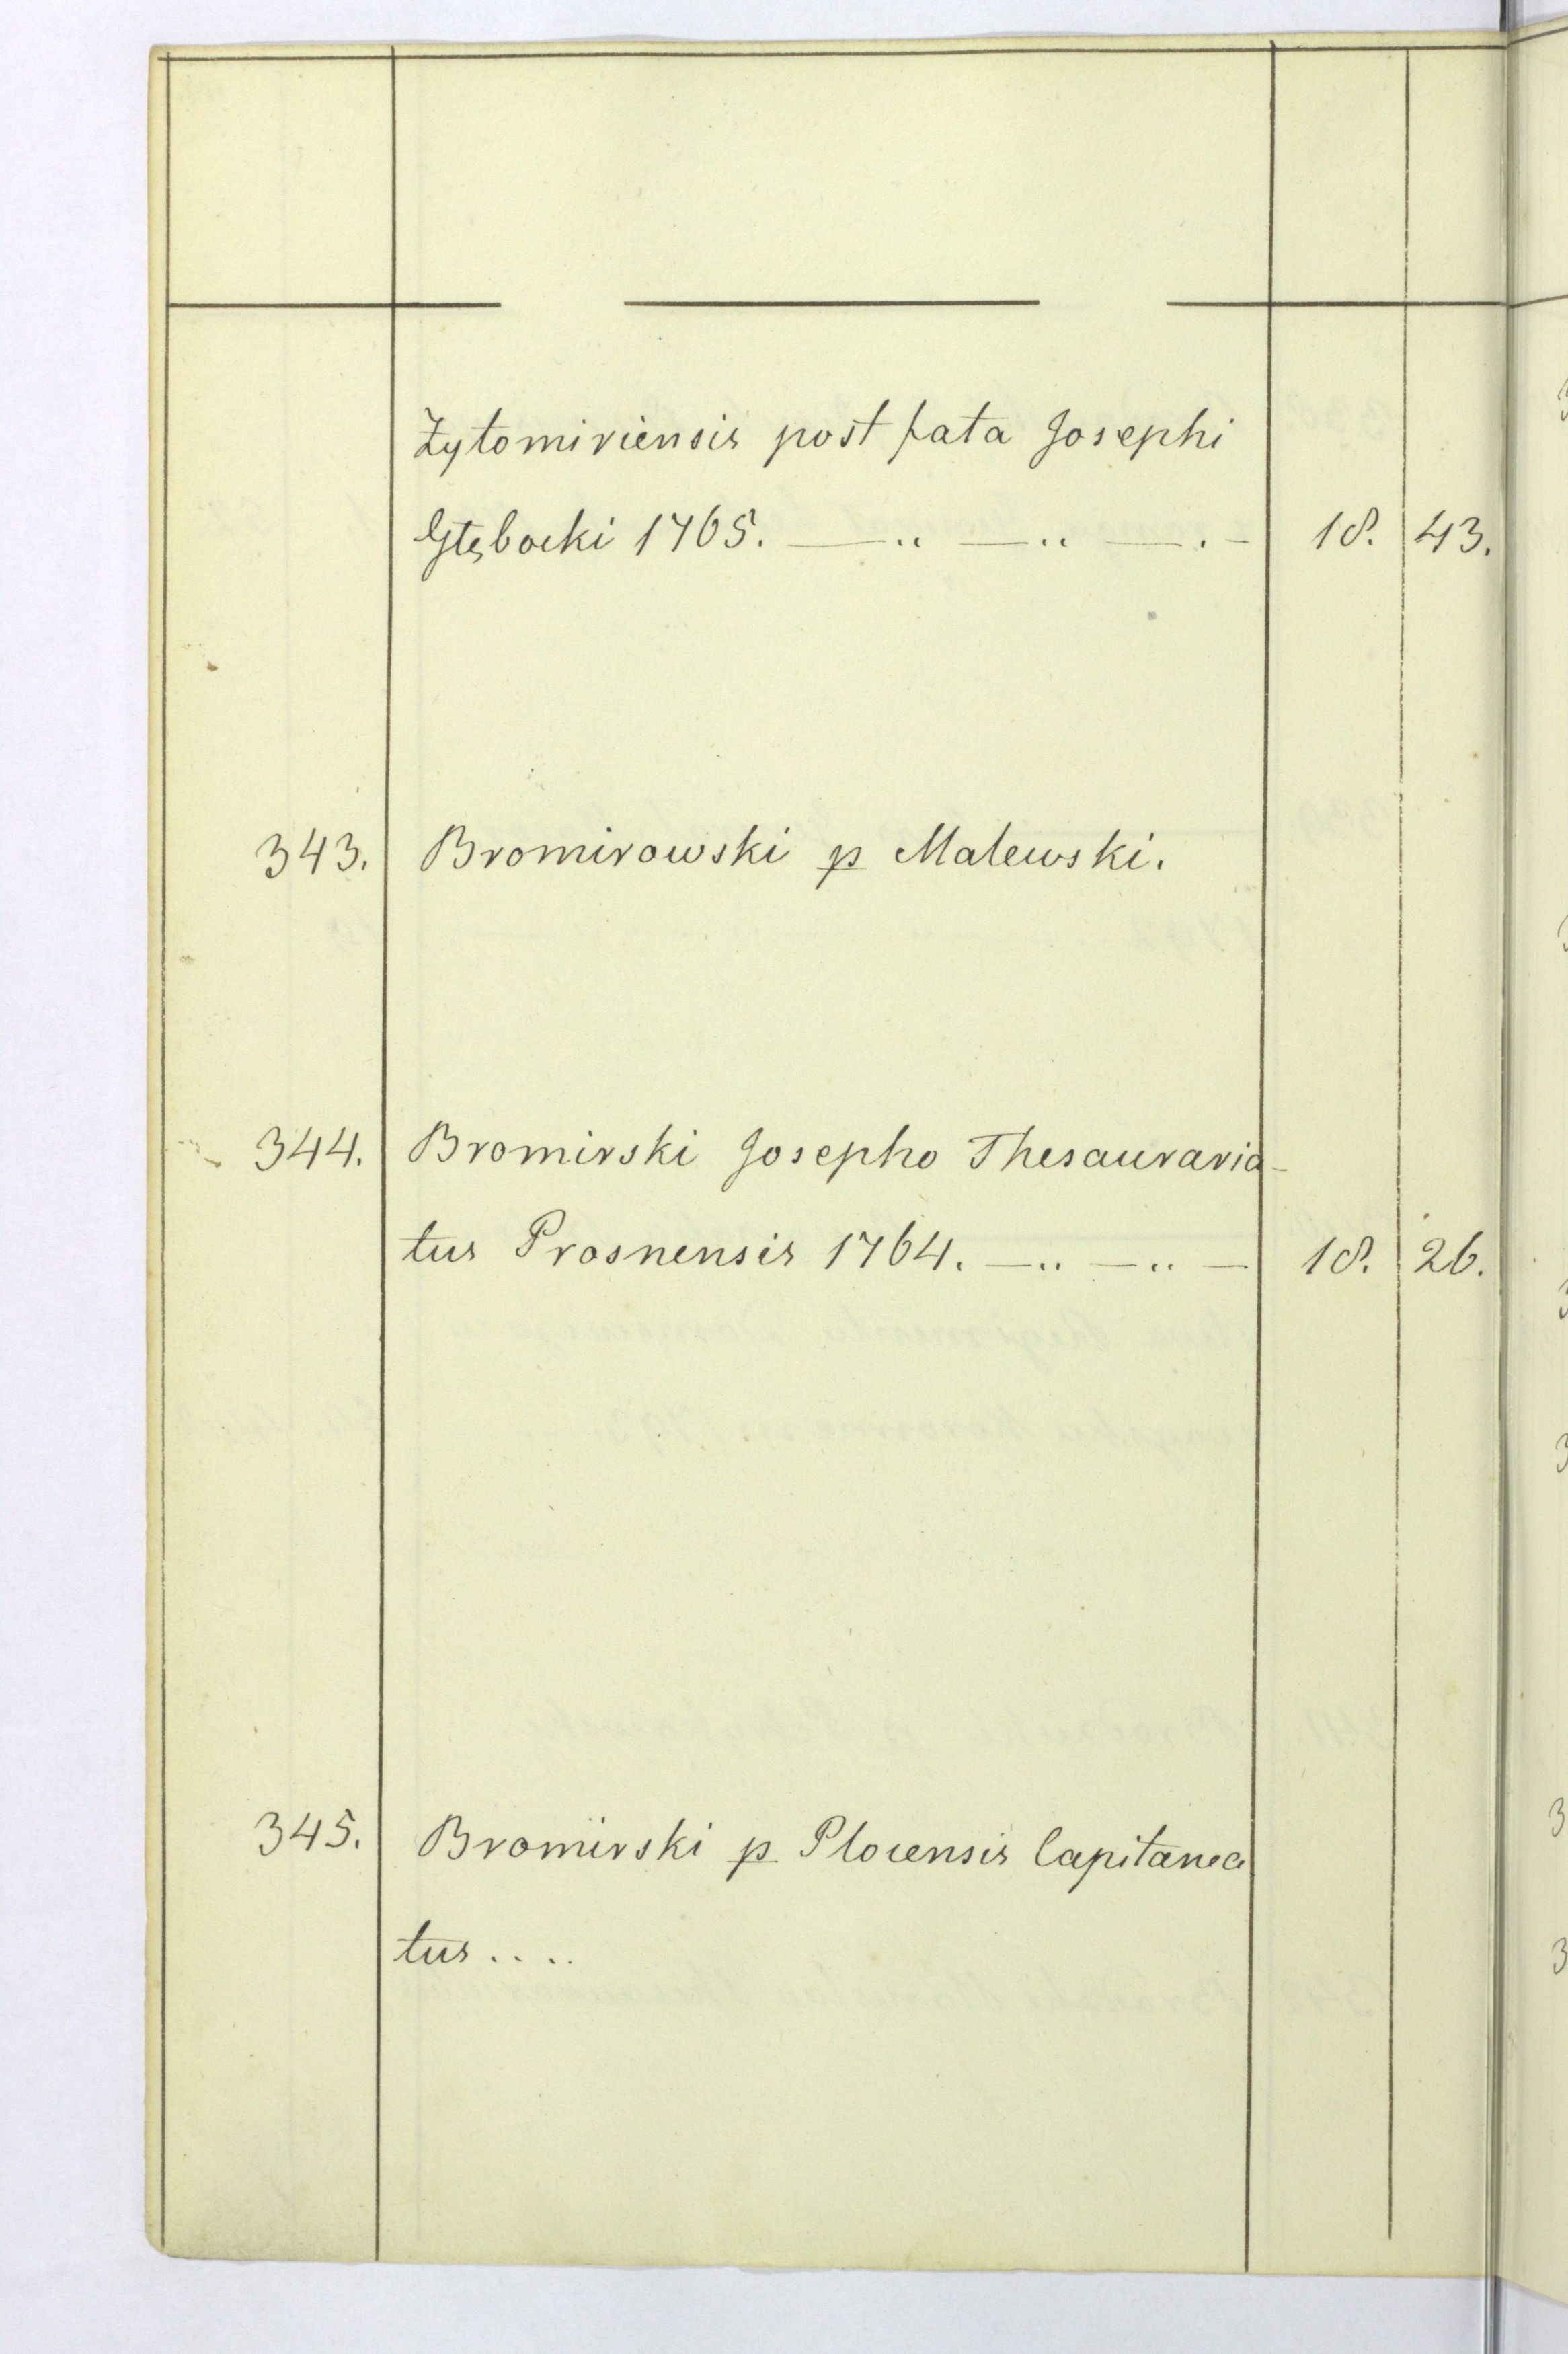 Żytomiriensis post fata Josephi
Głębocki 1765. —.. —.. —. – 18. 43.
343. Bromirowski p Malewski.
344. Bromirski Josepho Thesauraria-
tus Prosnensis 1764. —.. —.. — 18. 26.
345. Bromirski p Plocensis Capitanea
tus....